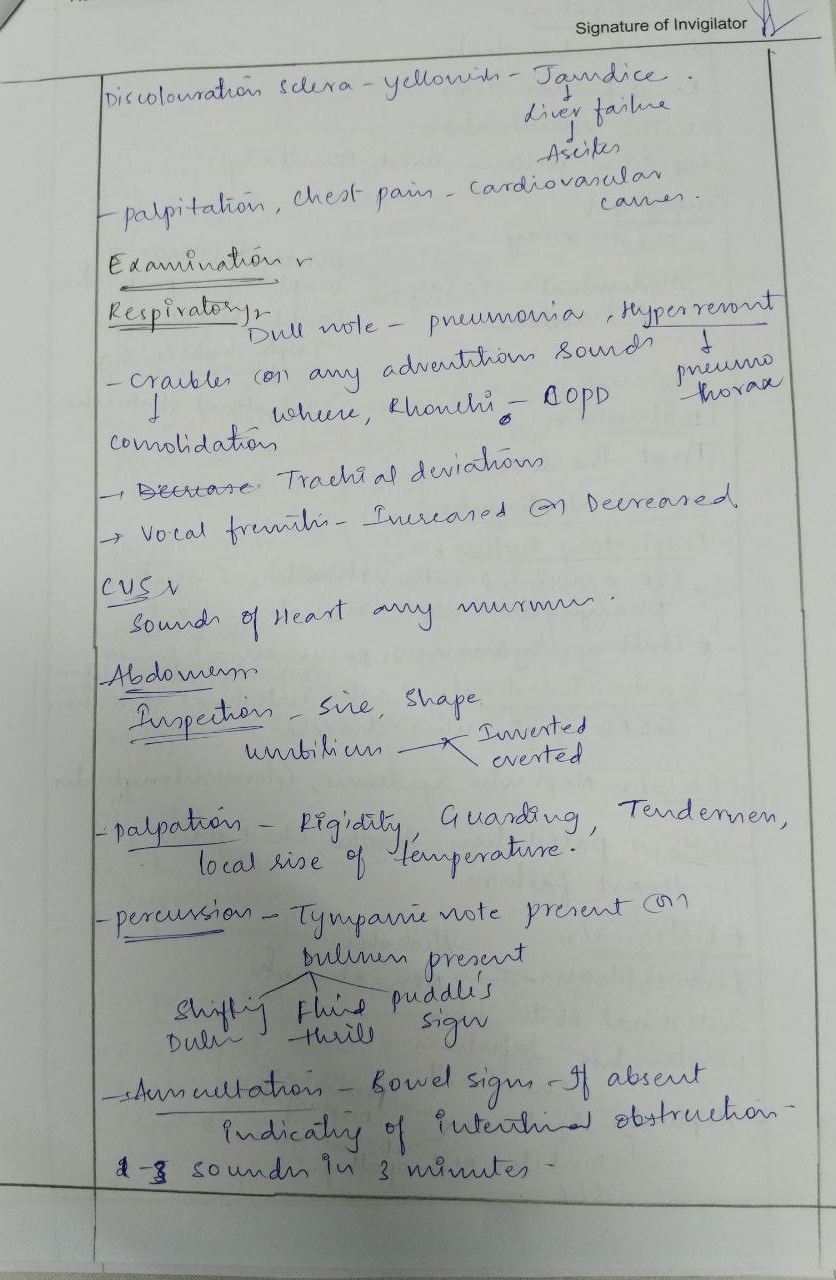 Signature of Invigilator
Discolouration sclera - yellowish - Jaundice.
↓
liver failure
↓
Ascites
- palpitation, chest pain - cardiovascular
causes.
Examination
Respiratory
Dull note - pneumonia, Hyperresont
↓
pneumo
thorax
- Crackles (or) any adventitious sounds
↓
where, Rhonchi - COPD
consolidation
→ Decrease Trachial deviations
→ Vocal fremitus - Increased (or) Decreased
CVS
Sounds of Heart any murmur.
Abdomen
Inspection - Size, Shape
umbilicus Inverted
everted
- palpation - Rigidity, Guarding, Tenderness,
local rise of temperature.
- percussion - Tympanic note present (or)
Dullness present
Shifting Fluid puddle's
Dull thrill sign
→ Auscultation - Bowel signs - If absent
indicating of intestinal obstruction -
sounds in 3 minutes -